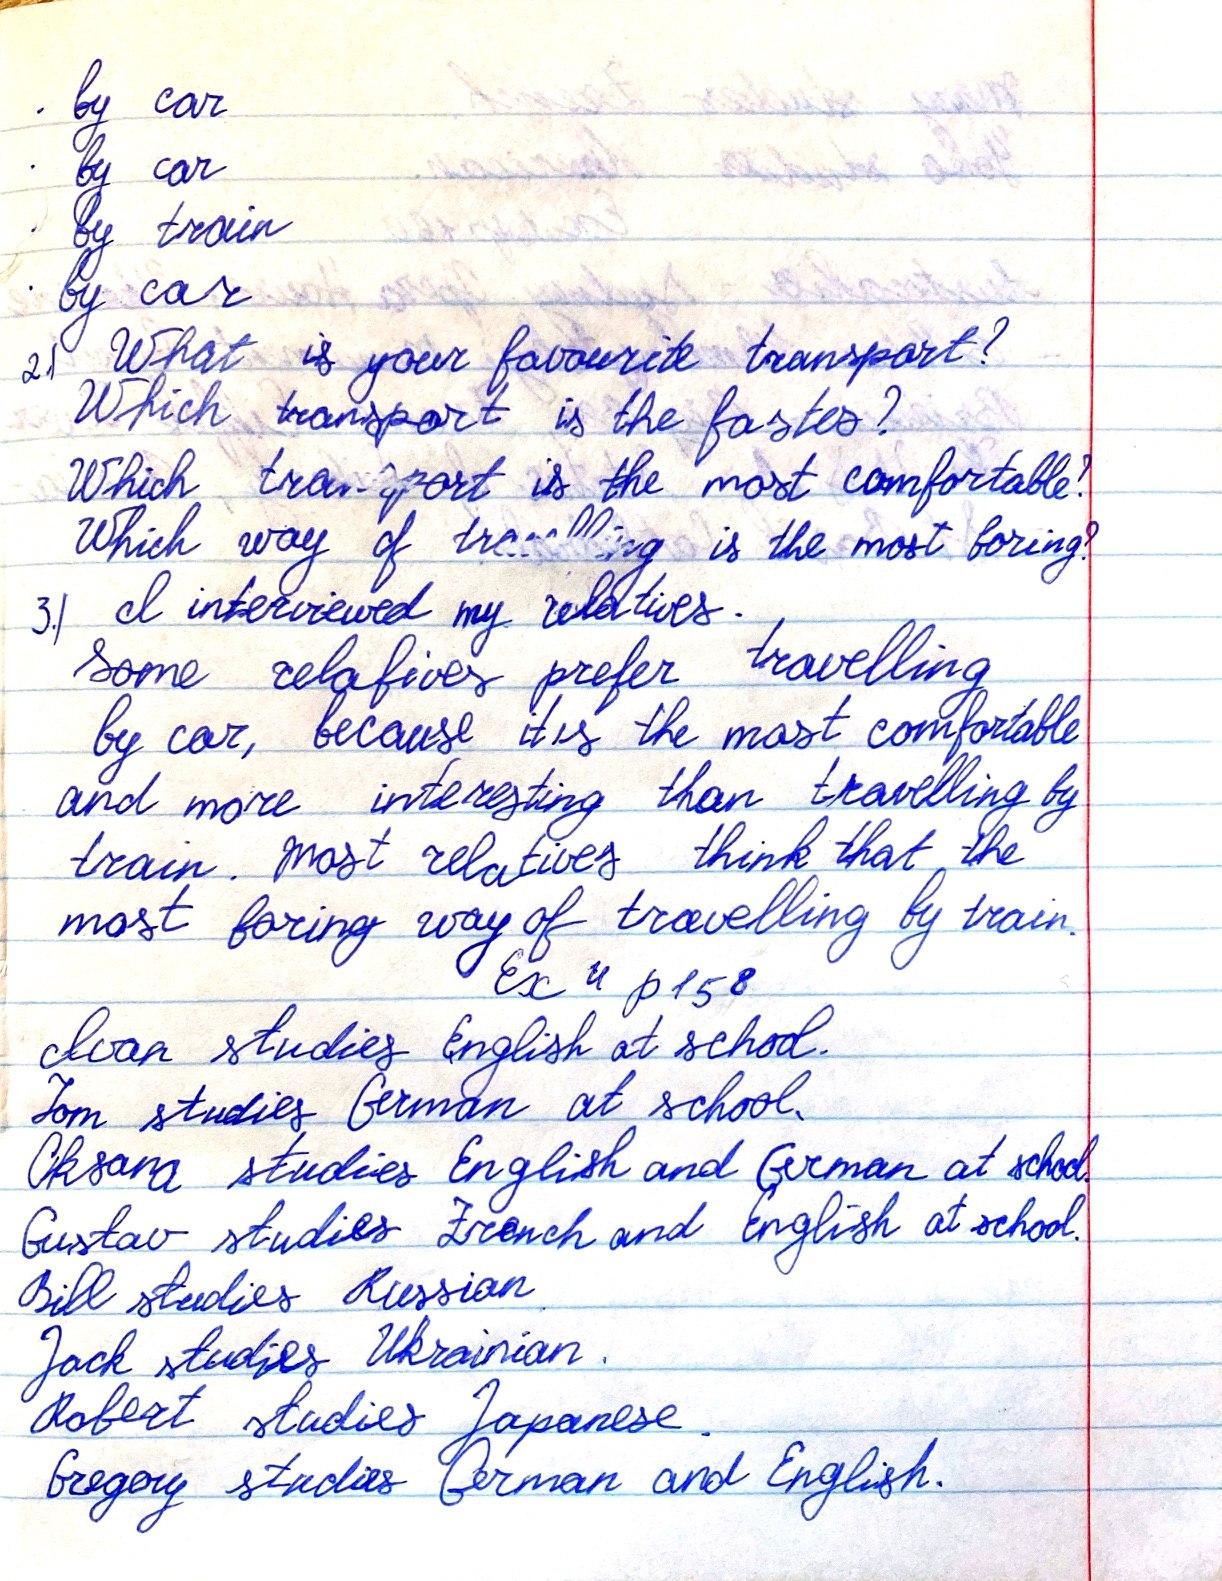 · by car
· by car
· by train
· by car
2.) What is your favourite transport?
Which transport is the fastes?
Which transport is the most comfortable?
Which way of travelling is the most boring?
3.) I interviewed my relatives.
Some relatives prefer travelling
by car, because it is the most comfortable
and more interesting than travelling by
train. Most relatives think that the
most boring way of travelling by train.
Ex 4 p 158
Ivan studies English at school.
Tom studies German at school.
Oksana studies English and German at school.
Gustav studies French and English at school.
Bill studies Russian
Jack studies Ukrainian.
Robert studies Japanese.
Gregory studies German and English.